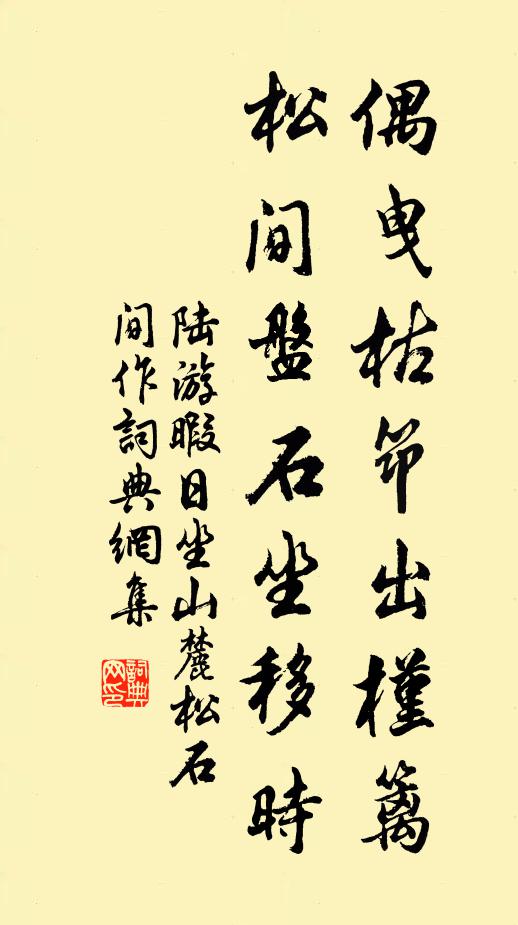 偶曳枯筇出槿篱
松间盤石坐移時
陆游暇日坐山麓松石
间作詞典網集
詞典网印